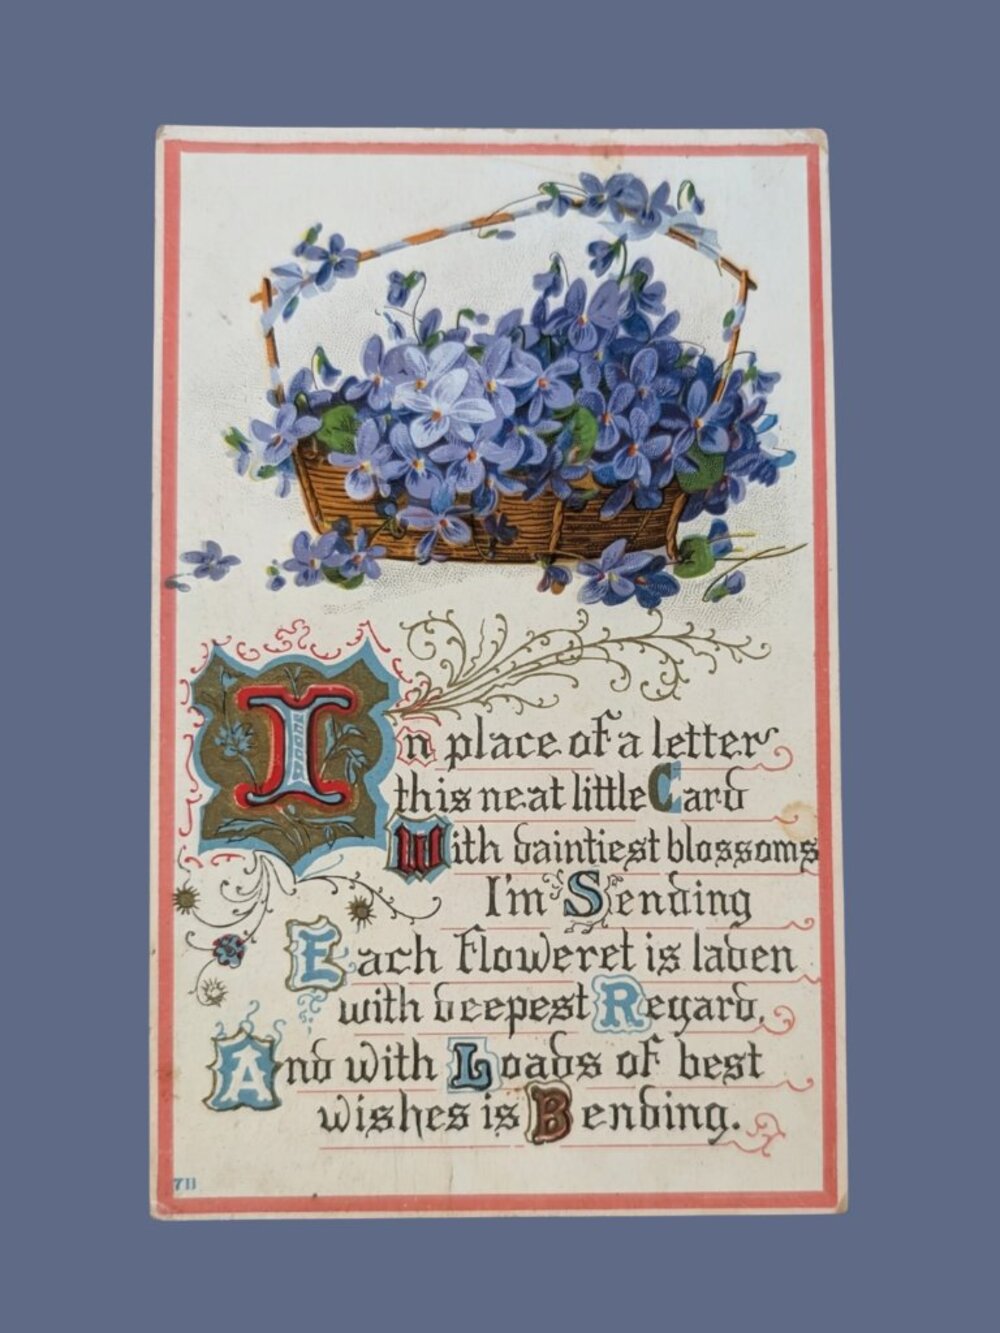 In place of a letter
this neat little Card
With daintiest blossoms
I'm Sending
Each floweret is laden
with deepest Regard,
And with Loads of best
wishes is Bending.
7B